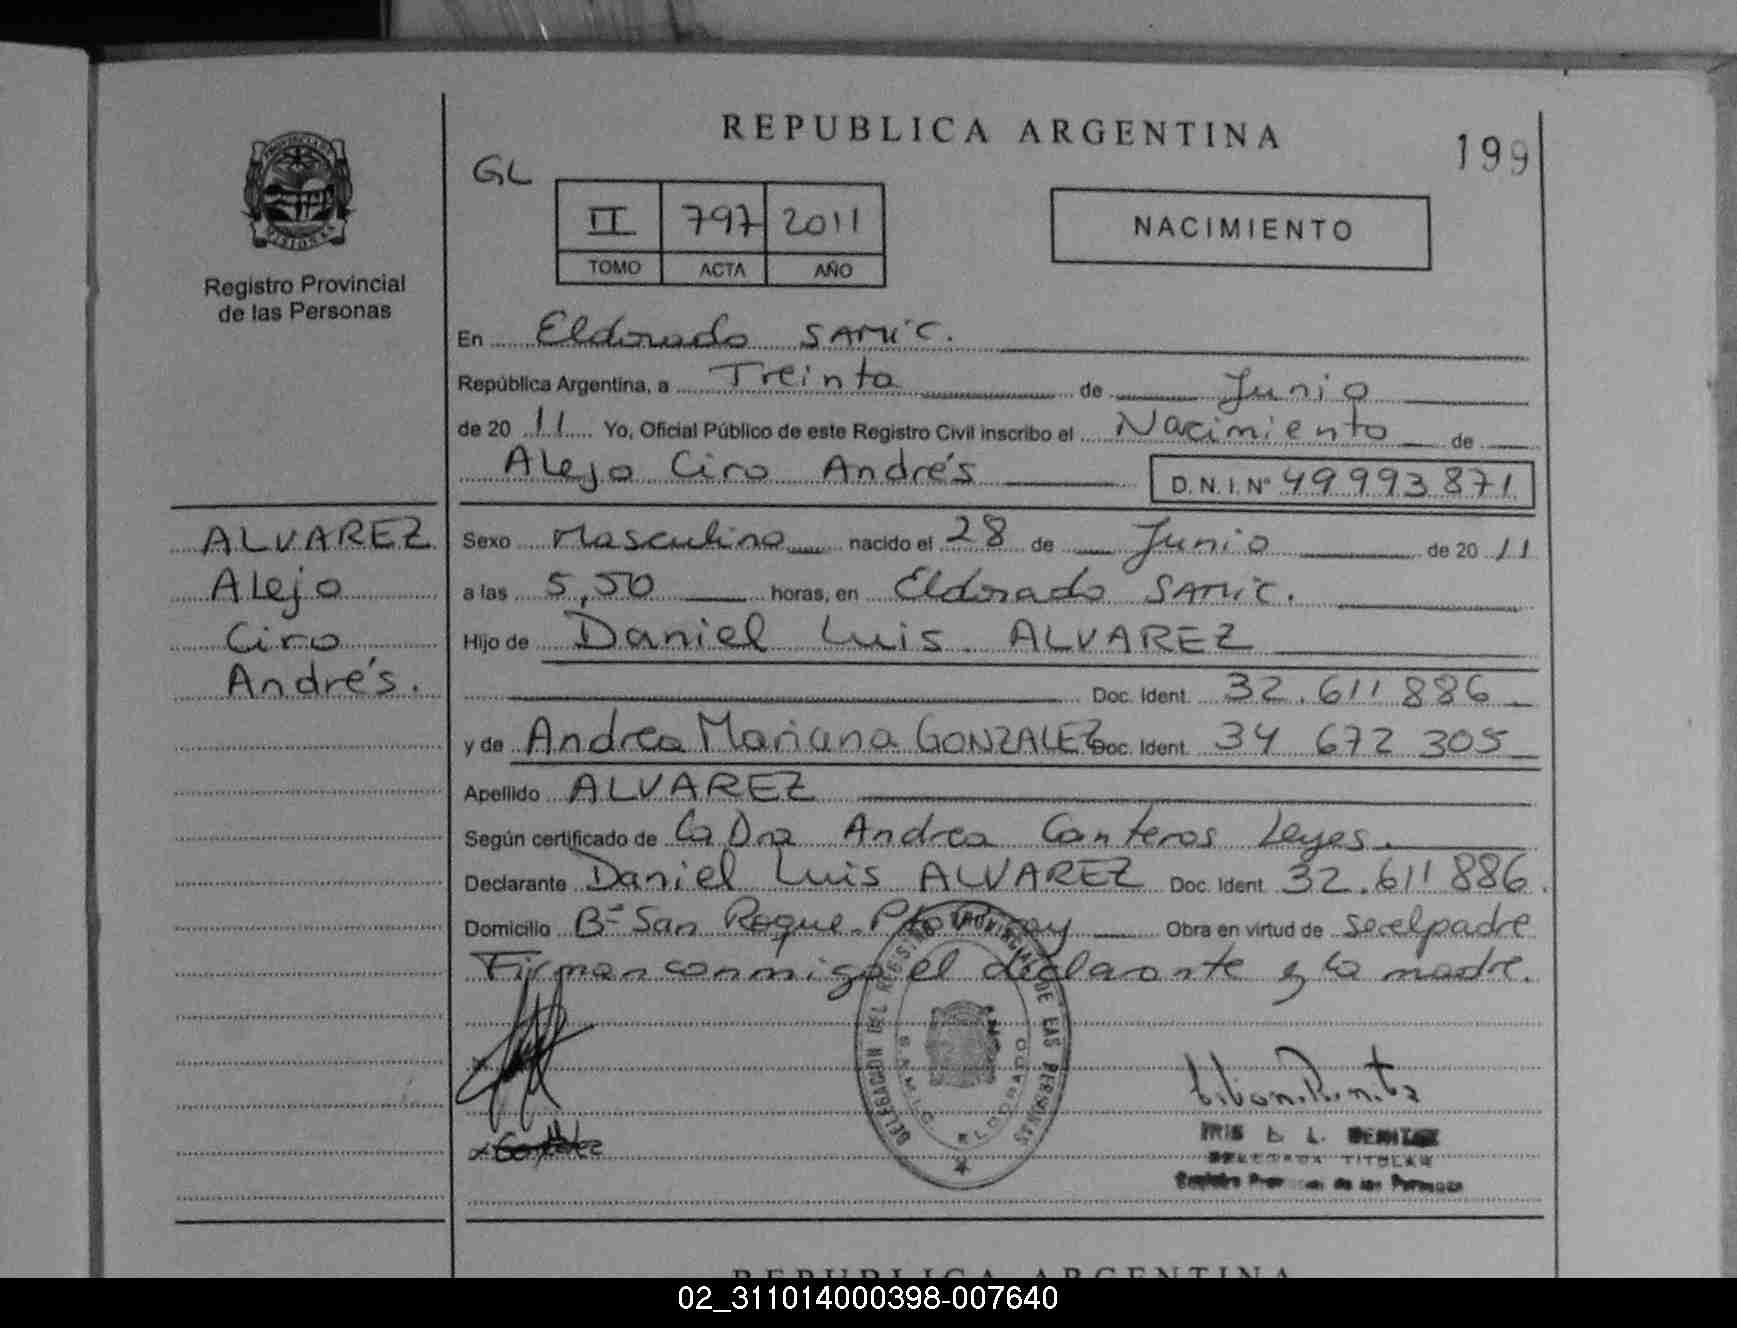 REPUBLICA ARGENTINA
199
GL
II 797 2011
TOMO ACTA AÑO
NACIMIENTO
PROVINCIA DE
MISIONES
Registro Provincial
de las Personas
En Eldorado SAMIC.
República Argentina, a Treinta de Junio
de 20 11 Yo, Oficial Público de este Registro Civil inscribo el Nacimiento de
Alejo Ciro Andrés D.N.I. Nº 49993871
ALVAREZ
Alejo
Ciro
Andrés.
Sexo Masculino nacido el 28 de Junio de 20 11
a las 5,50 horas, en Eldorado SAMIC.
Hijo de Daniel Luis ALVAREZ
Doc. Ident. 32.611886
y de Andrea Mariana GONZALEZ Doc. Ident. 34 672 305
Apellido ALVAREZ
Según certificado de La Dra Andrea Canteros Leyes.
Declarante Daniel Luis ALVAREZ Doc. Ident. 32.611886.
Domicilio Bº San Roque. Pto Obra en virtud de ser el padre
Firman conmigo el declarante y la madre.
DELEGACION DEL REGISTRO PROVINCIAL DE LAS PERSONAS
SAMIC ELDORADO
DELEGADA TITULAR
Registro Provincial de las Personas
REPUBLICA ARGENTINA
02_311014000398-007640